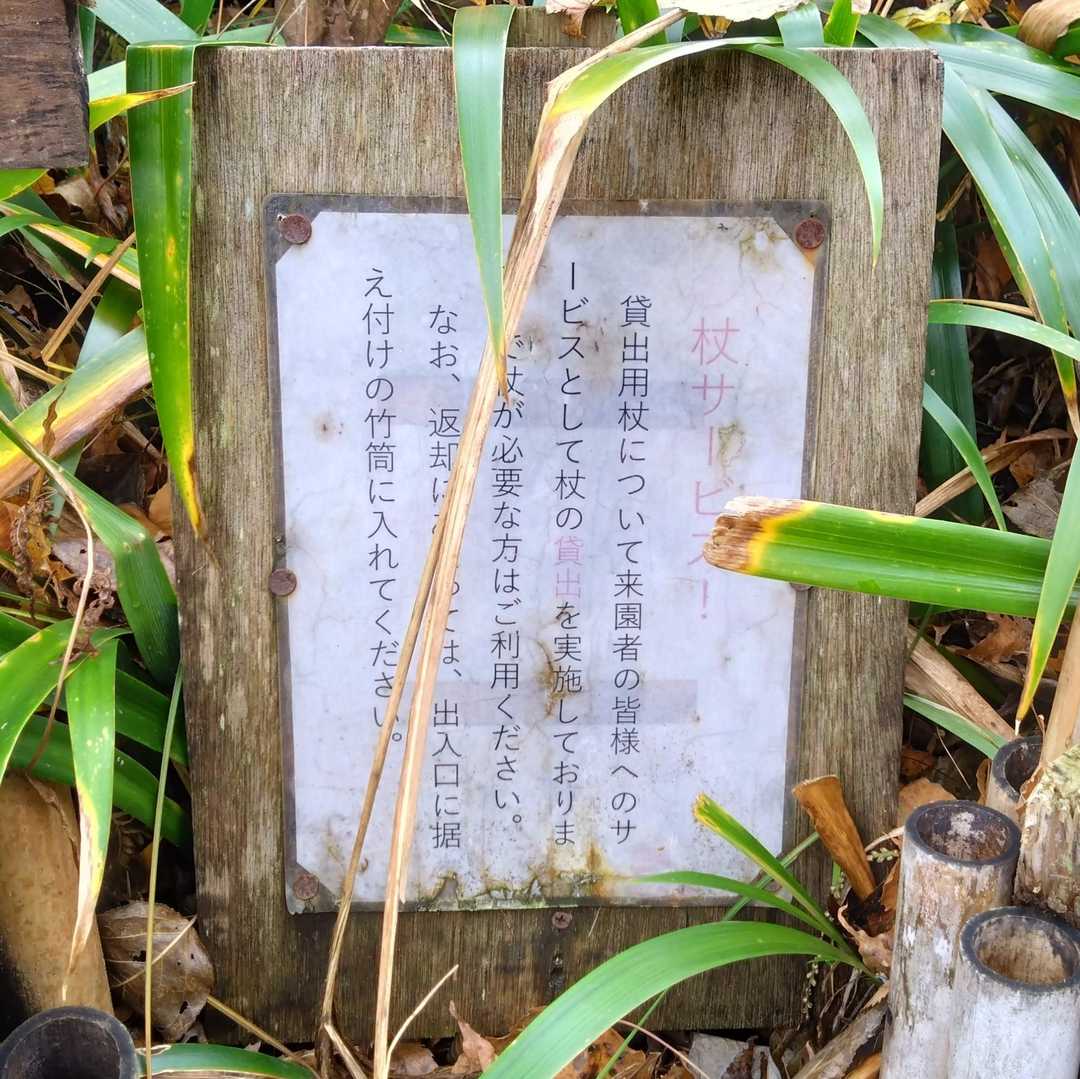 杖サービス！
貸出用杖について来園者の皆様へのサ
ービスとして杖の貸出を実施しておりま
で杖が必要な方はご利用ください。
なお、返却に っては、出入口に据
え付けの竹筒に入れてください。